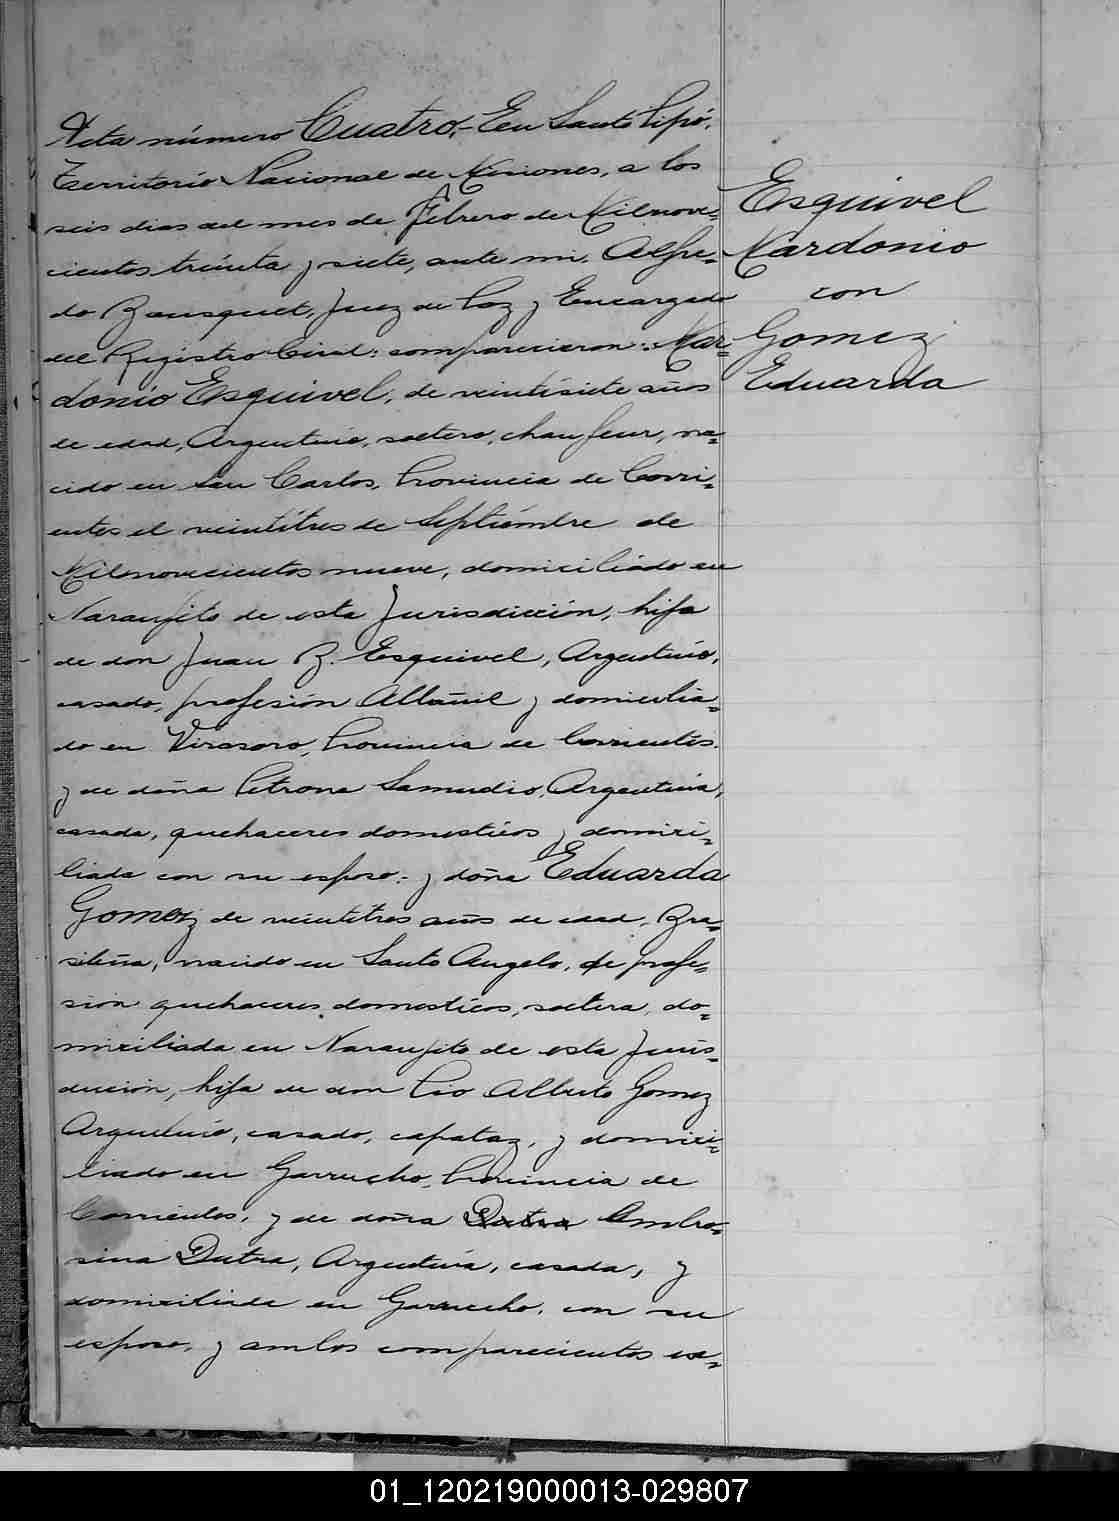 Acta número Cuatro.- En Santo Pipó,
Territorio Nacional de Misiones, a los
seis dias del mes de Febrero de Milnove=
cientos treinta y siete, ante mi, Alfre=
do Bousquet, Juez de Paz y Encargado
del Registro Civil: comparecieron: Mar=
donio Esquivel, de veintisiete años
de edad, Argentino, soltero, chauffeur, na=
cido en San Carlos, Provincia de Corri=
entes el veintitres de Septiembre de
Milnovecientos nueve, domiciliado en
Naranjito de esta Jurisdicción, hijo
de don Juan B. Esquivel, Argentino,
casado, profesión Albañil y domicilia=
do en Virasoro, Provincia de Corrientes.
y de doña Petrona Samudio, Argentina,
casada, quehaceres domesticos y domici=
liada con su esposo: y doña Eduarda
Gomez de veintitres años de edad, Bra=
sileña, nacido en Santo Angelo, de profe=
sión quehaceres domesticos, soltera, do=
miciliada en Naranjito de esta Juris=
dicción, hija de don Pio Alberto Gomez
Argentino, casado, capataz, y domici=
liado en Garrucho, Provincia de
Corrientes, y de doña Dutra Ambro=
sina Dutra, Argentina, casada, y
domiciliada en Garrucho, con su
esposo, y ambos comparecientos ex=
Esquivel
Mardonio
con
Gomez
Eduarda
01_120219000013-029807